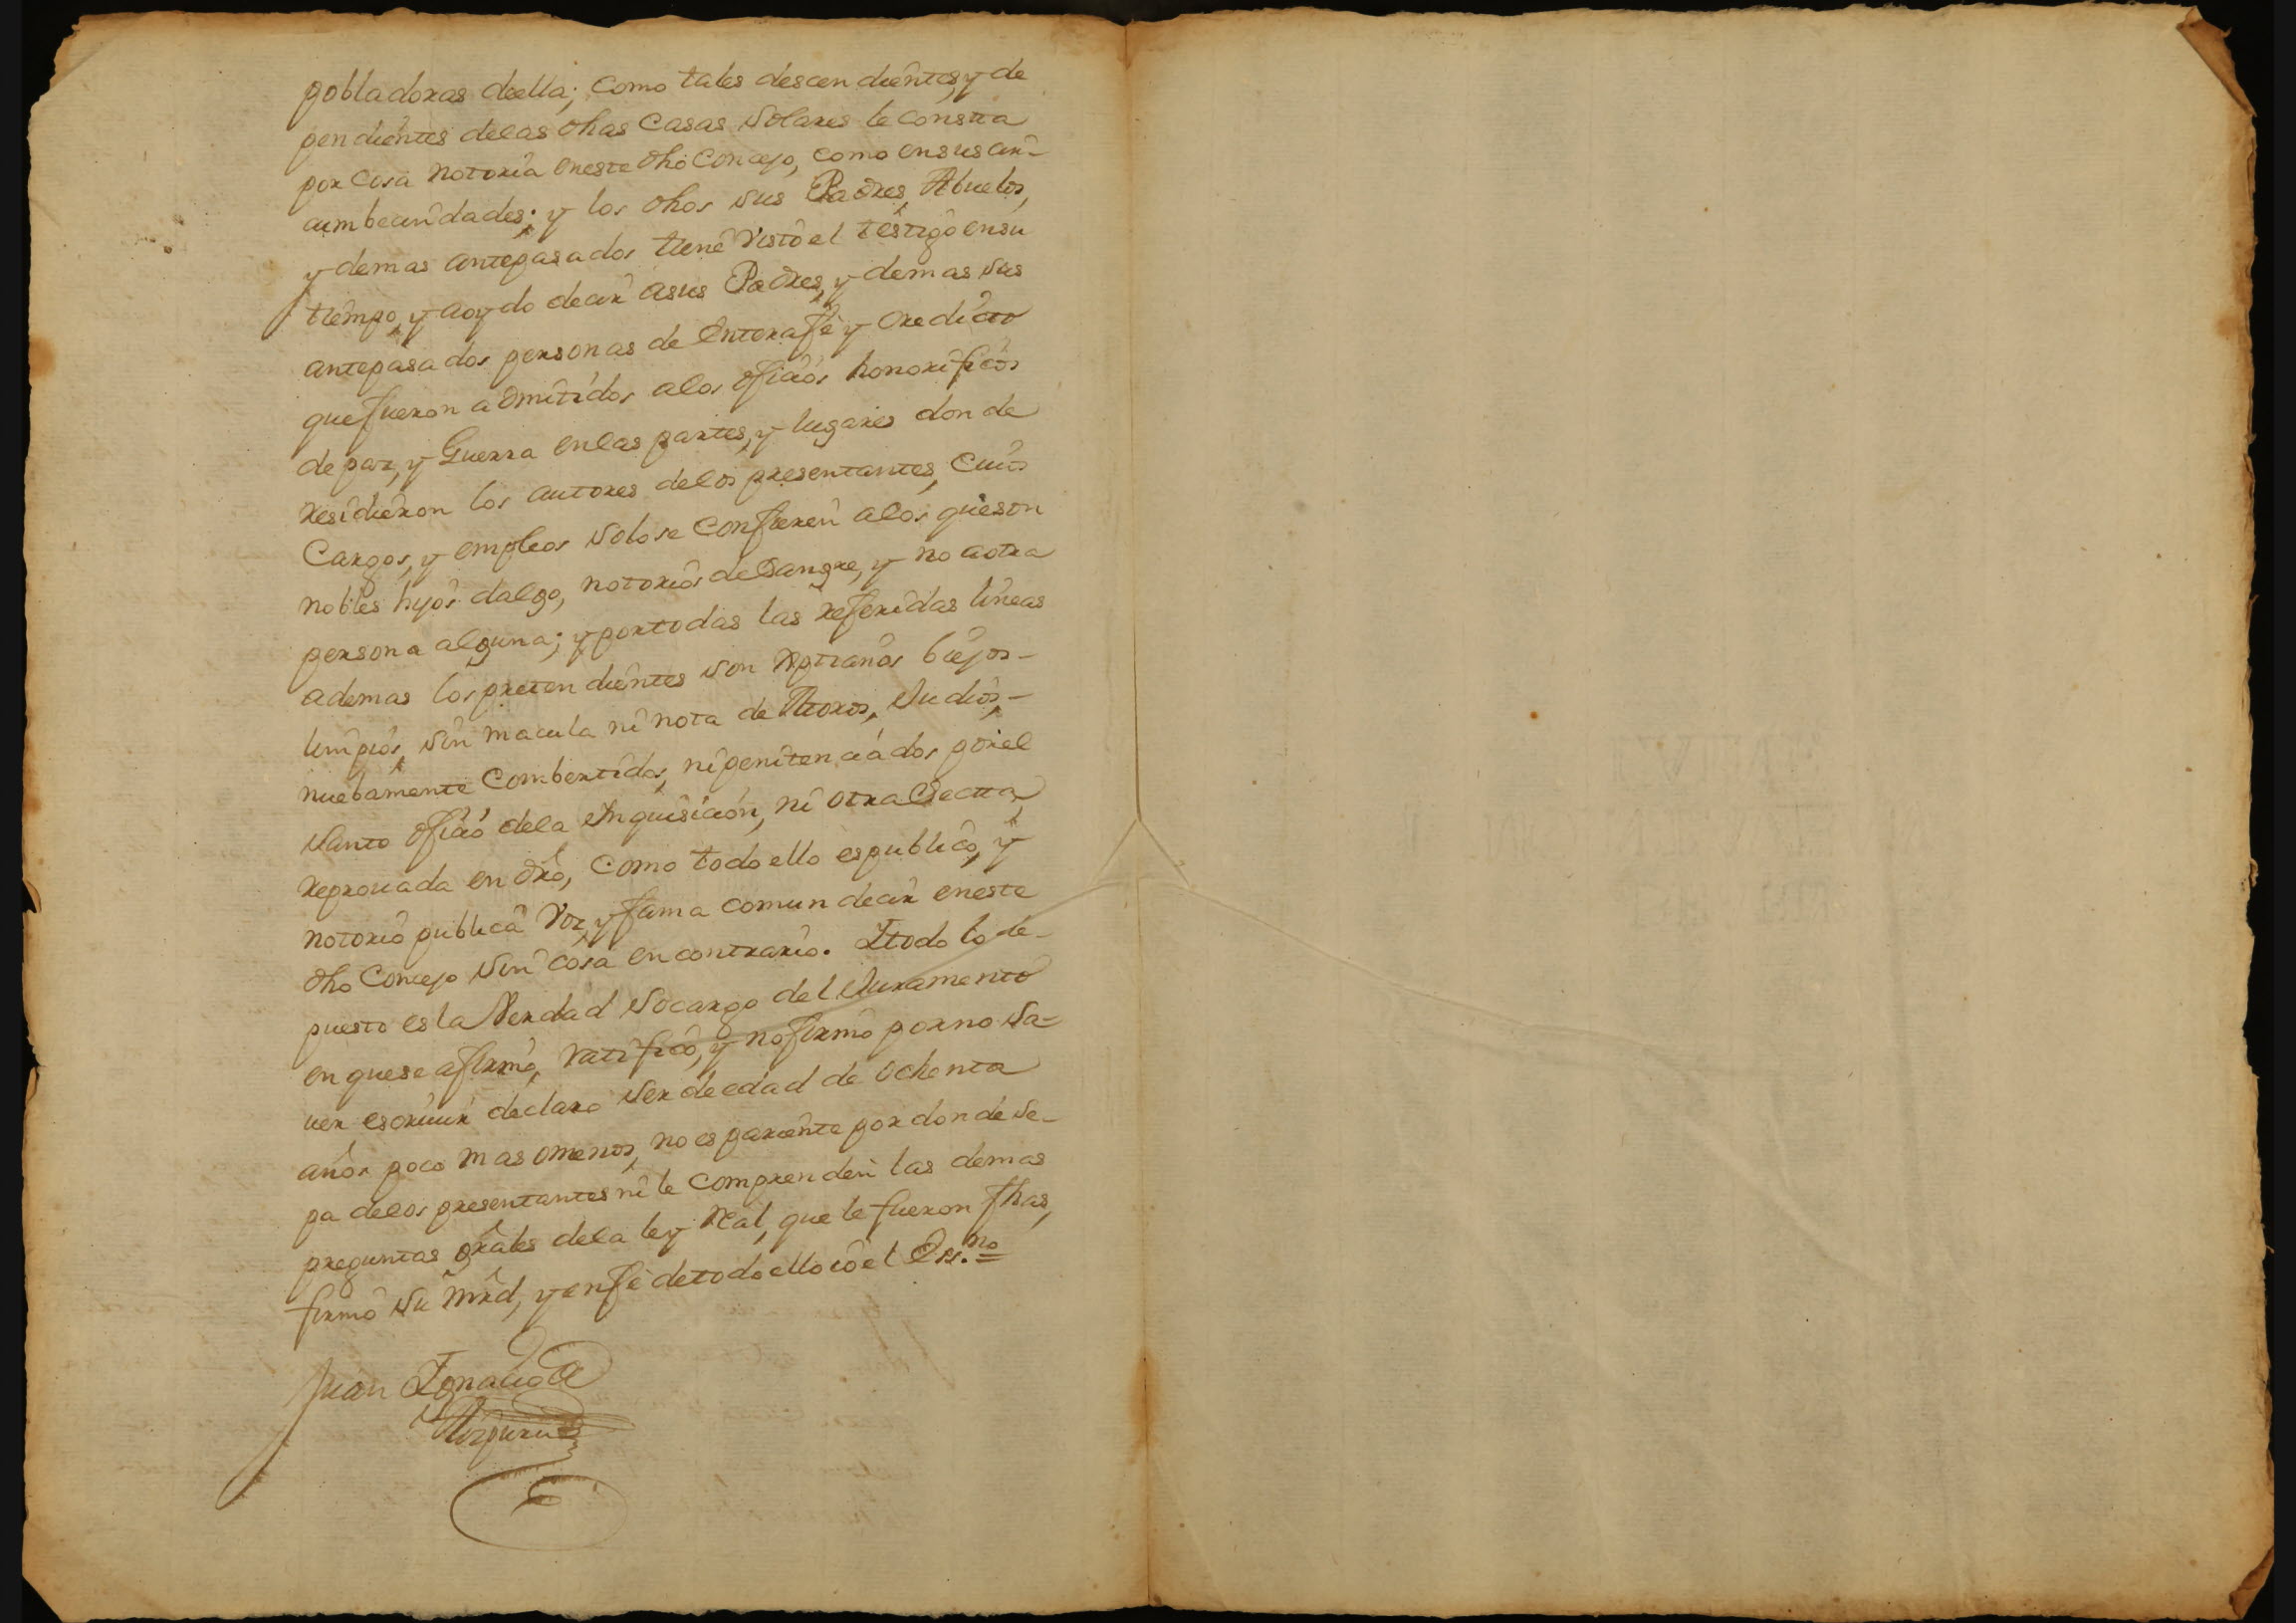 pobladoras deella; como tales descendientes, y de
pendientes delas dhas Casas Solares le consta
por cosa notoria eneste dho Concejo, como ensus cir-
cumbecindades; y los dhos sus Padres, Abuelos,
y demas antepasados tiene visto el testigo ensu
tiempo, y aoydo decir asus Padres, y demas sus
antepasados personas de entera fè y credicto
que fueron admitidos alos oficios honorificos
de paz, y Guerra enlas partes, y lugares donde
residieron los autores delos presentantes, cuios
Cargos, y empleos solo se confieren alos queson
nobles hyos dalgo, notorios de Sangre, y no aotra
persona alguna; y portodas las referidas lineas
ademas los pretendientes son Xptianos biejos-
limpios, sin macula ni nota de Moros, Judios,-
nuebamente combertidos, ni penitenciados porel
Santo oficio dela Inquisicion, ni otra Sectta
reprouada en dro, como todo ello es publico, y
notorio publica voz, y fama comun decir eneste
dho Concejo sin cosa encontrario. Itodo lo de-
puesto es la Verdad socargo del Juramento
en que se afirmò, ratificò, y nofirmò porno sa-
uer escriuir declaro ser de edad de ochenta
años poco mas omenos, no es pariente por donde se-
pa delos presentantes ni le comprenden las demas
preguntas grales dela ley Real, que le fueron fhas,
firmò su mrd, y enfè detodo ello io el Ess.no
Juan Ignacio de
Aizpuru